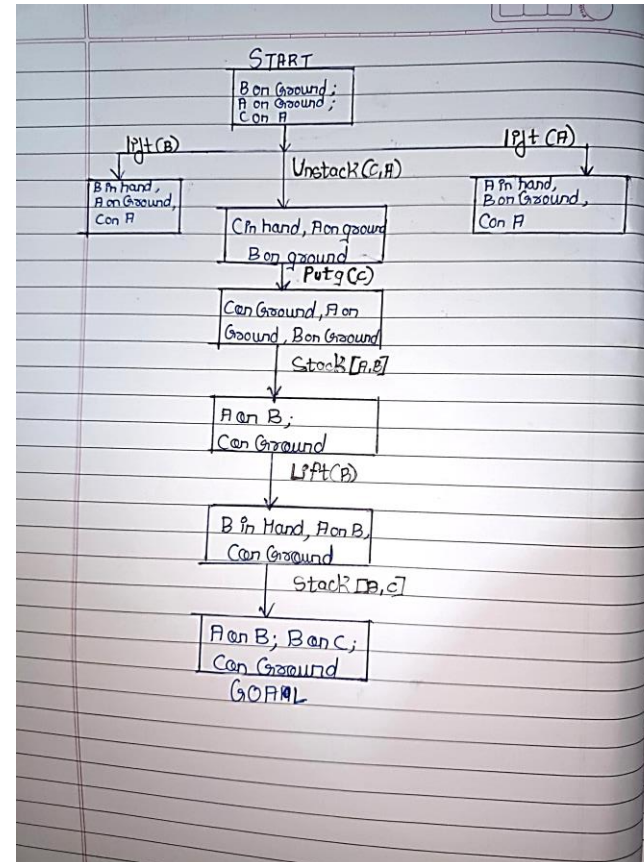 START
B on Ground;
A on Ground;
C on A
lift (B)
lift (A)
Unstack (C,A)
B in hand,
A on Ground,
C on A
A in hand,
B on Ground,
C on A
C in hand, A on ground
B on ground
Putg (C)
C on Ground, A on
Ground, B on Ground
Stack [A,B]
A on B;
C on Ground
Lift (B)
B in Hand, A on B,
C on Ground
Stack [B,C]
A on B; B on C;
C on Ground
GOAL